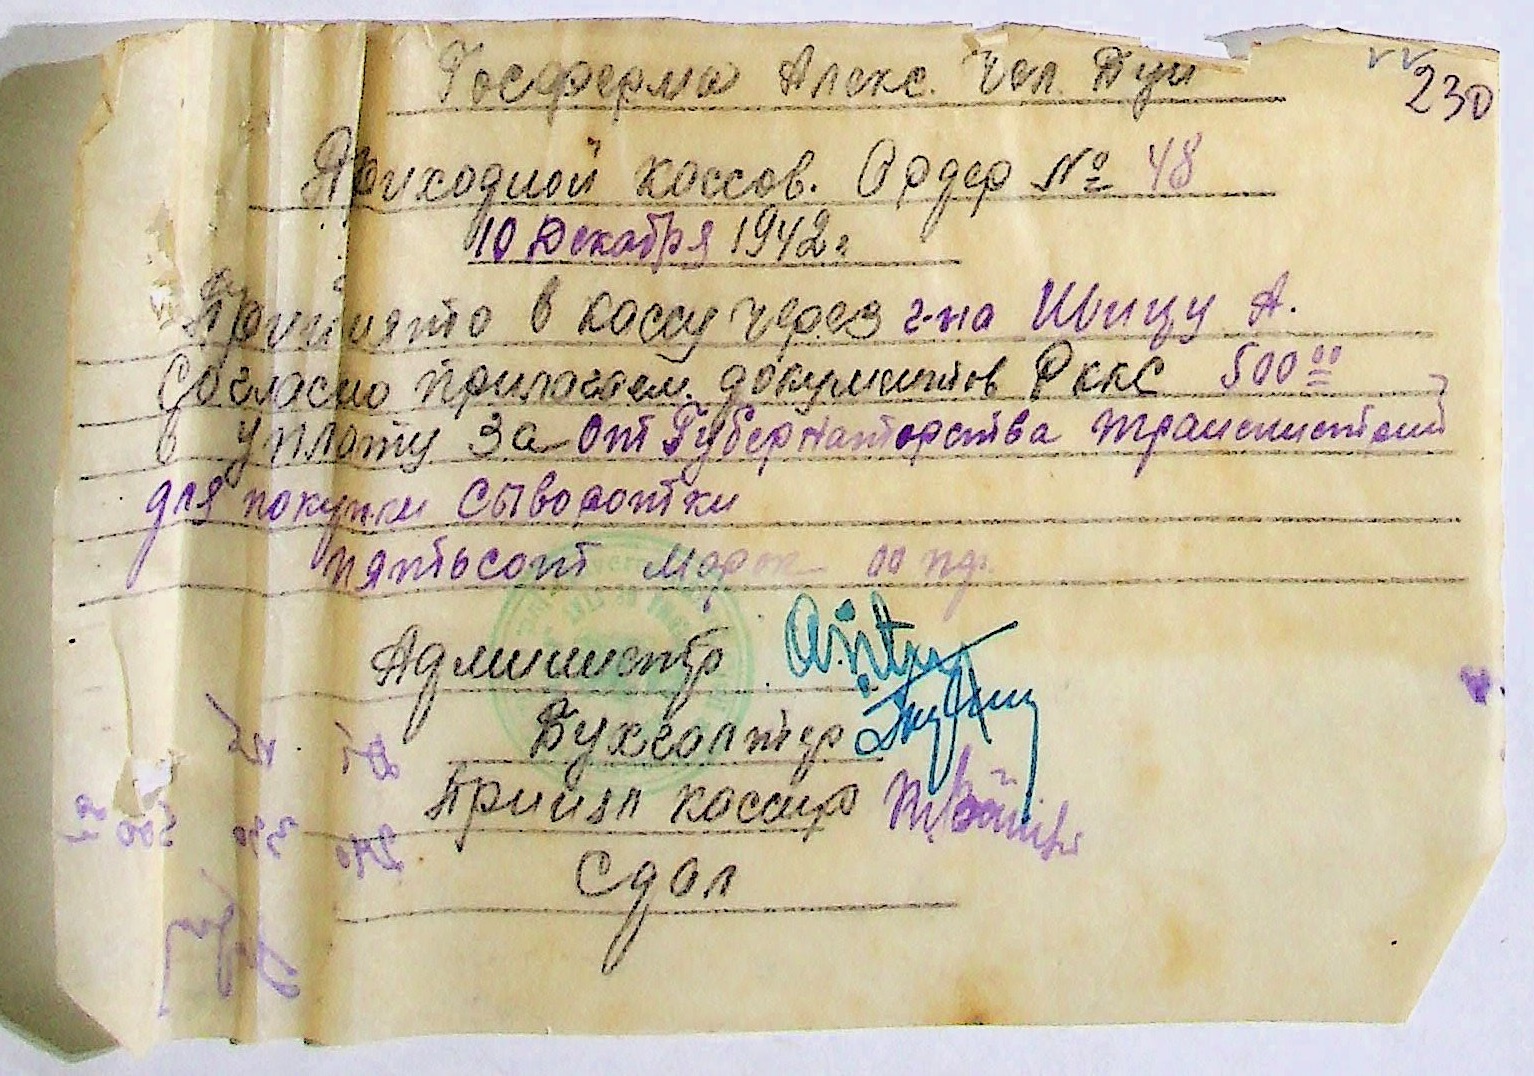 230
Госферма Алекс. Чел. Буи
Приходной кассов. Ордер № 48
10 Декабря 1942 г
Принято в кассу через г-на Швицу А.
Согласно прилагаем. документов Рккс 500 00
в уплату За от Губернаторства транснистрии
для покупки Сыворотки
пятьсот марок 00 пф.
Администр
Бухгалтер
Принял кассир
Сдал